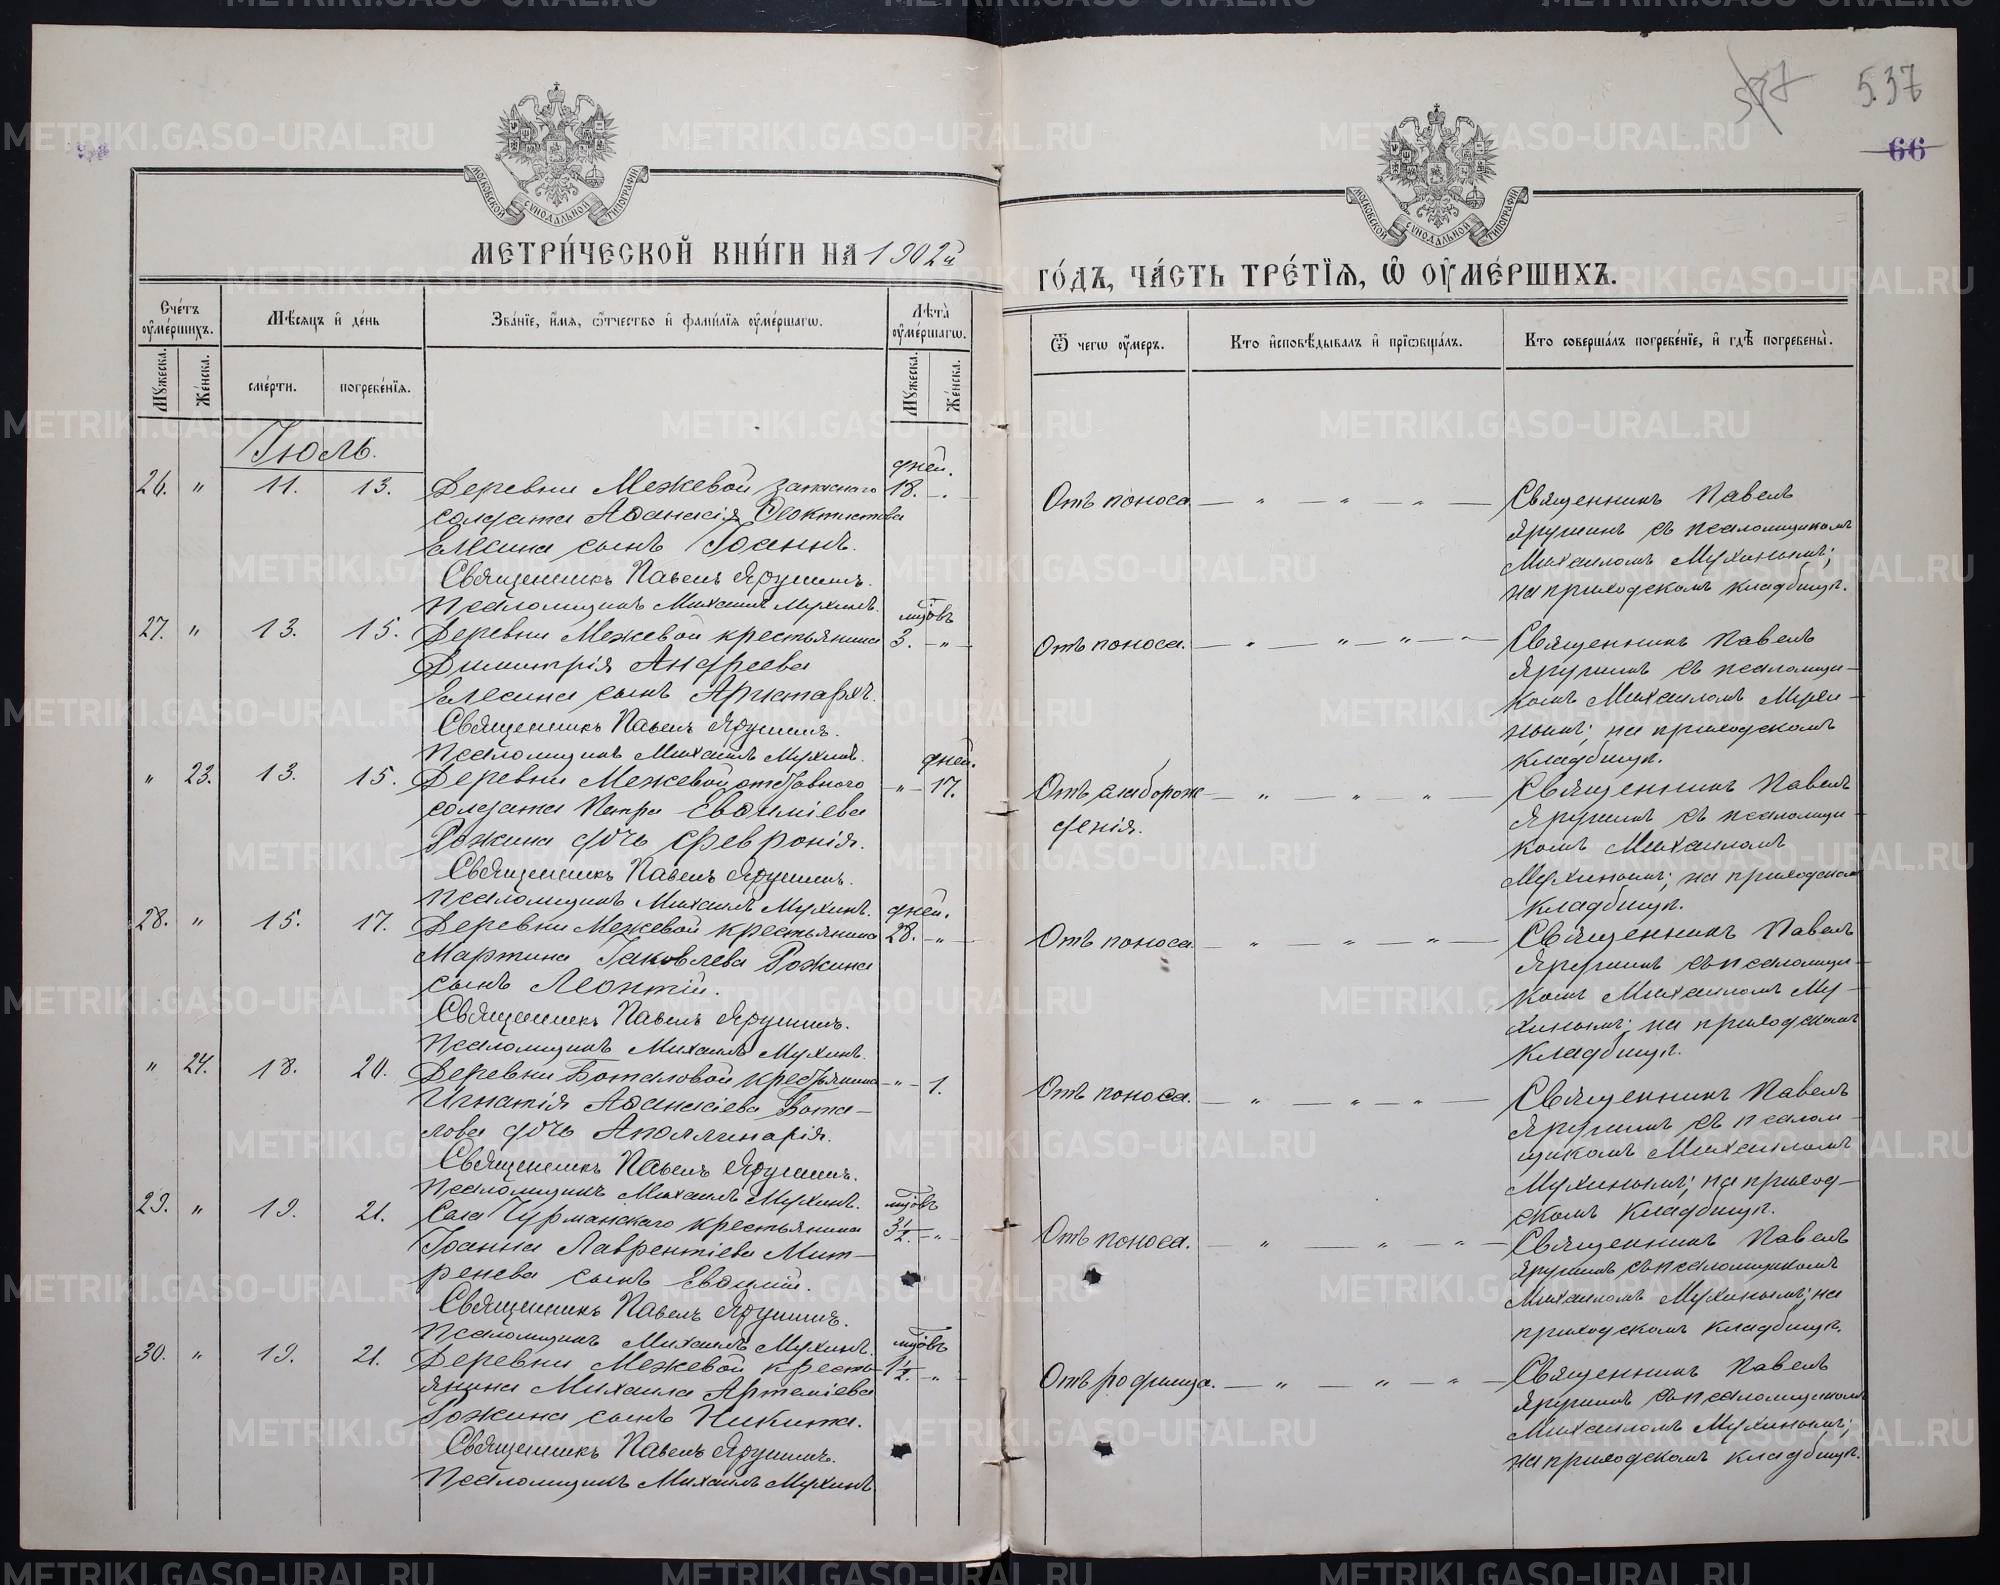 537
66
МОСКОВСКОЙ СѴНОДАЛЬНОЙ ТИПОГРАФІИ
МОСКОВСКОЙ СѴНОДАЛЬНОЙ ТИПОГРАФІИ
МЕТРИ́ЧЕСКОЙ КНИ́ГИ НА 1902й
ГО́ДЪ, ЧА́СТЬ ТРЕ́ТЇѦ, Ѽ ОУМЕ́РШИХЪ.
Сче́тъ оумершихъ.
Мѣсяцъ и де́нь
Зва́нїе, и́мя, ѻ́тчество и фами́лїя оуме́ршагѡ.
Лѣта̀ оуме́ршагѡ.
Ѿ чегѡ оу́меръ.
Кто и҆сповѣ́дывалъ и҆ прїѡбща́лъ.
Кто соверша́лъ погребе́нїе, и҆ гдѣ̀ погребены̀.
Мꙋжеска.
Же́нска.
сме́рти.
погребе́нїя.
Мꙋжеска.
Же́нска.
Іюль.
дней.
26. " 11. 13. Деревни Межевой запаснаго 18. - .
солдата Аѳанасія Ѳеоктистова
Елесина сынъ Іоаннъ.
Священникъ Павелъ Ярушинъ.
Псаломщикъ Михаилъ Мухинъ.
Отъ поноса — " — " — " —
Священникъ Павелъ
Ярушинъ съ псаломщикомъ
Михаиломъ Мухинымъ;
на приходскомъ кладбищѣ.
мцовъ
27. " 13. 15. Деревни Межевой крестьянина 3. — " —
Димитрія Андреева
Елесина сынъ Аристархъ.
Священникъ Павелъ Ярушинъ.
Псаломщикъ Михаилъ Мухинъ.
Отъ поноса. — " — " — " — " —
Священникъ Павелъ
Ярушинъ съ псаломщи-
комъ Михаиломъ Мухи-
нымъ; на приходскомъ
кладбищѣ.
дней.
" 23. 13. 15. Деревни Межевой отставного " — 17.
солдата Петра Евѳиміева
Рожина дочь Февронія.
Священникъ Павелъ Ярушинъ.
Псаломщикъ Михаилъ Мухинъ.
Отъ слаборож-
денія.
— " — " — " —
Священникъ Павелъ
Ярушинъ съ псаломщи-
комъ Михаиломъ
Мухинымъ; на приходском
кладбищѣ.
дней.
28. " 15. 17. Деревни Межевой крестьянина 28. — " —
Мартина Іаковлева Рожина
сынъ Леонтій.
Священникъ Павелъ Ярушинъ.
Псаломщикъ Михаилъ Мухинъ.
Отъ поноса. — " — " — " —
Священникъ Павелъ
Ярушинъ съ псаломщи-
комъ Михаиломъ Му-
хинымъ; на приходскомъ
кладбищѣ.
" 24. 18. 20. Деревни Боталовой крестьянина — " — 1.
Игнатія Аѳанасіева Бота-
лова дочь Аполлинарія.
Священникъ Павелъ Ярушинъ.
Псаломщикъ Михаилъ Мухинъ.
Отъ поноса. — " — " — " —
Священникъ Павелъ
Ярушинъ съ псалом-
щикомъ Михаиломъ
Мухинымъ; на приход-
скомъ кладбищѣ.
мцовъ
29. " 19. 21. Села Чурманскаго крестьянина 3½. — " —
Іоанна Лаврентіева Мит-
ренева сынъ Евѳимій.
Священникъ Павелъ Ярушинъ.
Псаломщикъ Михаилъ Мухинъ.
Отъ поноса. — " — " — " —
Священникъ Павелъ
Ярушинъ съ псаломщикомъ
Михаиломъ Мухинымъ; на
приходскомъ кладбищѣ.
мцовъ
30. " 19. 21. Деревни Межевой кресть- 1½. — " —
янина Михаила Артеміева
Рожина сынъ Никита.
Священникъ Павелъ Ярушинъ.
Псаломщикъ Михаилъ Мухинъ.
Отъ родимца. — " — " — " —
Священникъ Павелъ
Ярушинъ съ псаломщикомъ
Михаиломъ Мухинымъ;
на приходскомъ кладбищѣ.
METRIKI.GASO-URAL.RU